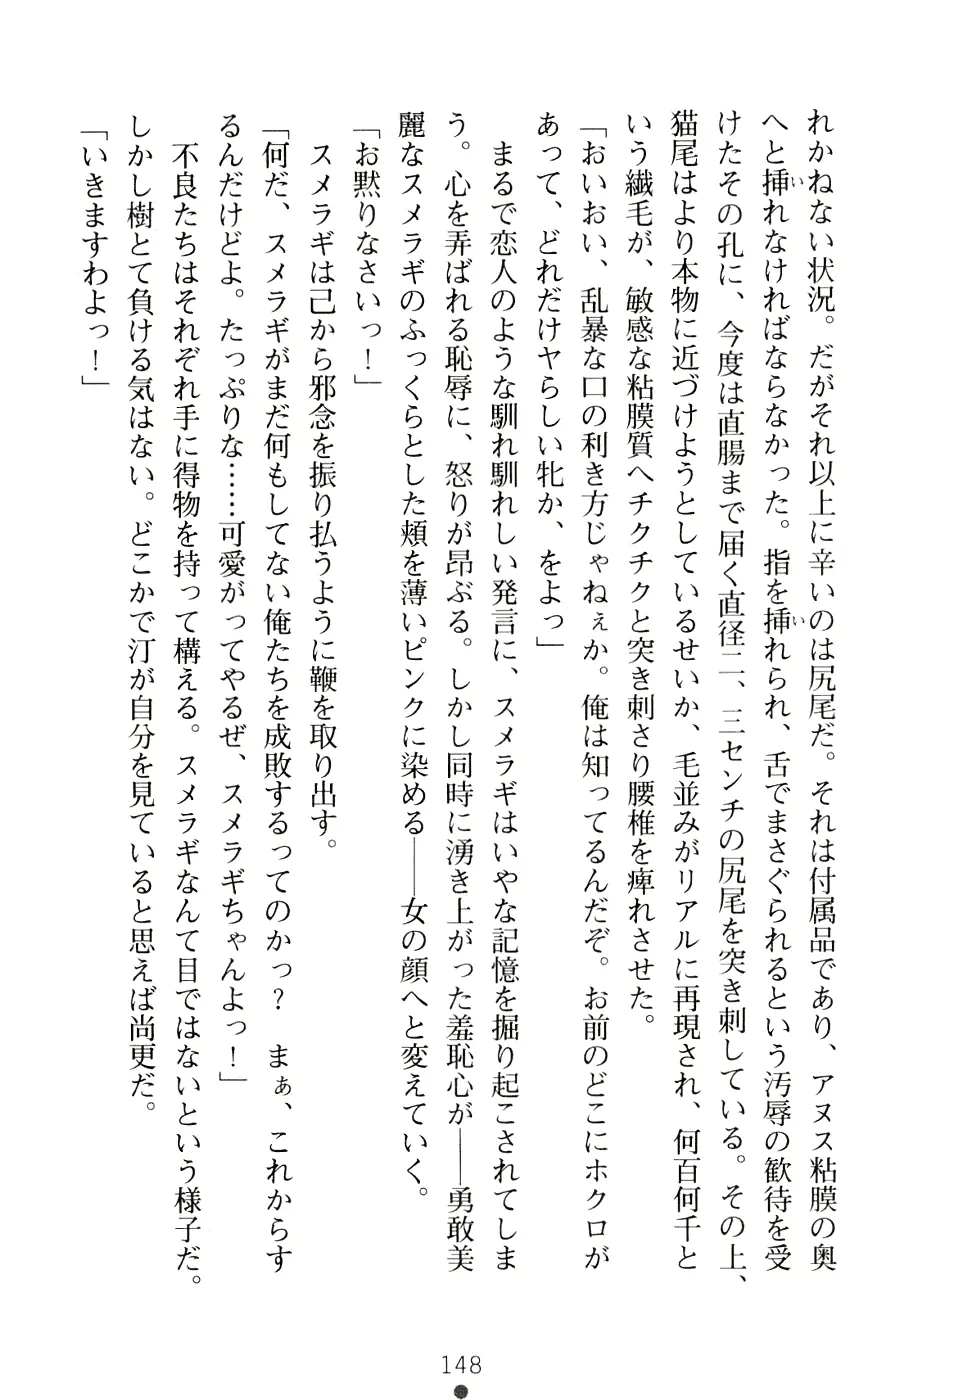 れかねない状況。だがそれ以上に辛いのは尻尾だ。それは付属品であり、アヌス粘膜の奥
へと挿れなければならなかった。指を挿れられ、舌でまさぐられるという汚辱の歓待を受
けたその孔に、今度は直腸まで届く直径二、三センチの尻尾を突き刺している。その上、
猫尾はより本物に近づけようとしているせいか、毛並みがリアルに再現され、何百何千と
いう繊毛が、敏感な粘膜質へチクチクと突き刺さり腰椎を痺れさせた。
「おいおい、乱暴な口の利き方じゃねぇか。俺は知ってるんだぞ。お前のどこにホクロが
あって、どれだけヤらしい牝か、をよっ」
まるで恋人のような馴れ馴れしい発言に、スメラギはいやな記憶を掘り起こされてしま
う。心を弄ばれる恥辱に、怒りが昂ぶる。しかし同時に湧き上がった羞恥心が――勇敢美
麗なスメラギのふっくらとした頬を薄いピンクに染める――女の顔へと変えていく。
「お黙りなさいっ！」
スメラギは己から邪念を振り払うように鞭を取り出す。
「何だ、スメラギがまだ何もしてない俺たちを成敗するってのかっ？　まぁ、これからす
るんだけどよ。たっぷりな……可愛がってやるぜ、スメラギちゃんよっ！」
不良たちはそれぞれ手に得物を持って構える。スメラギなんて目ではないという様子だ。
しかし樹とて負ける気はない。どこかで汀が自分を見ていると思えば尚更だ。
「いきますわよっ！」
148